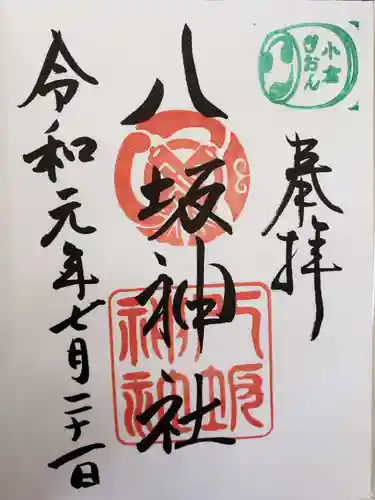 奉拝
小倉
ぎおん
八坂神社
八坂神社
令和元年七月二十一日